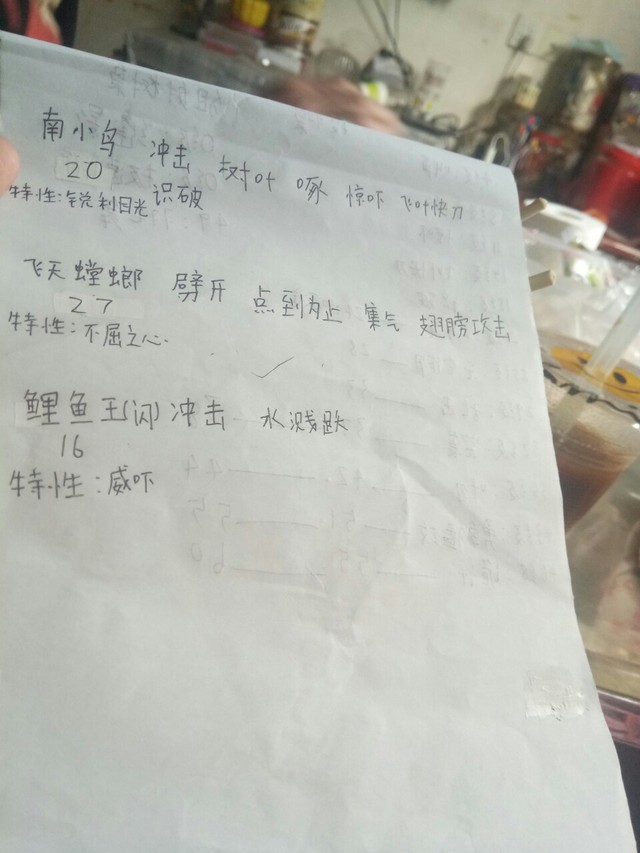 南小鸟 冲击 树叶 啄 惊吓 飞叶快刀
20 识破
特性：锐利目光
飞天螳螂 劈开 点到为止 集气 翅膀攻击
27
特性：不屈之心
鲤鱼王(闪) 冲击 水溅跃
16
特性：威吓